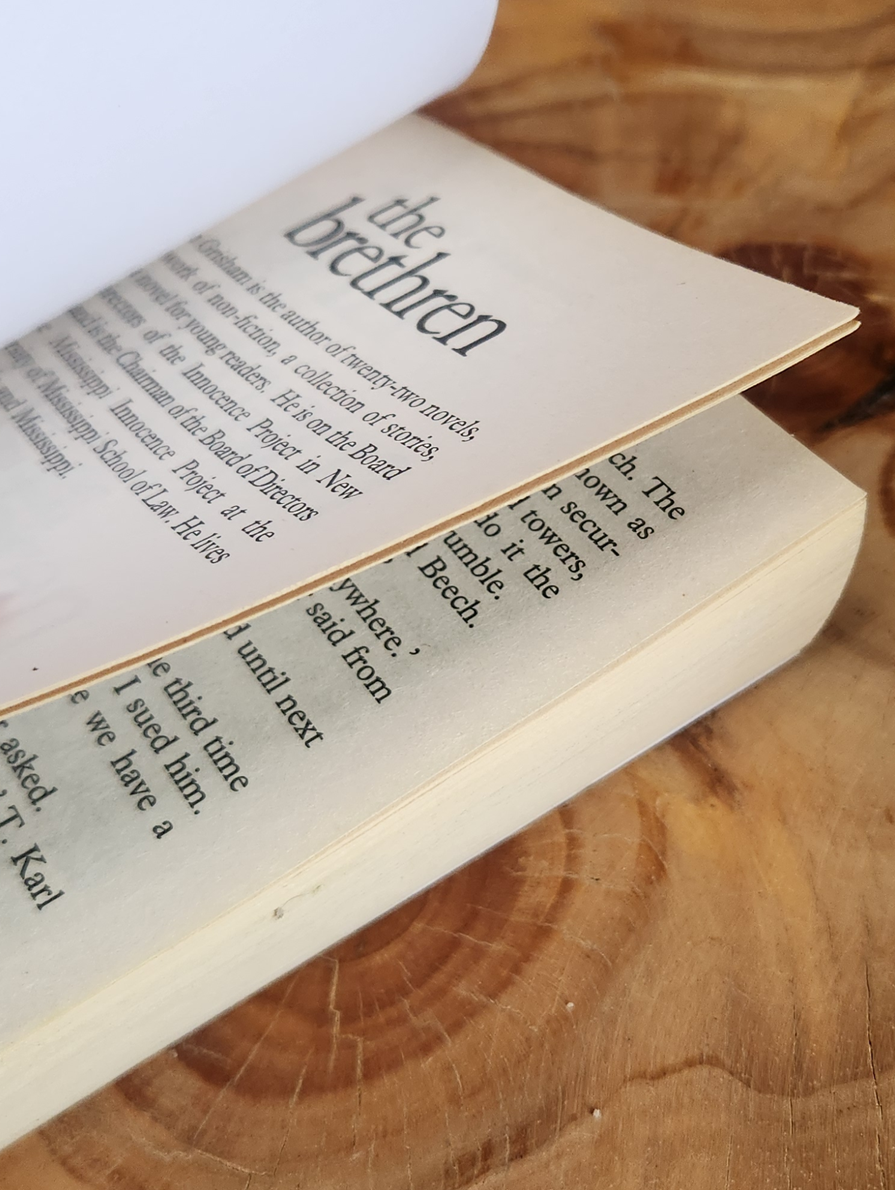 the
brethren
Grisham is the author of twenty-two novels,
work of non-fiction, a collection of stories,
novel for young readers. He is on the Board
of the Innocence Project in New
and is the Chairman of the Board of Directors
Mississippi Innocence Project at the
of Mississippi School of Law. He lives
and Mississippi.
ch. The
nown as
n secur-
towers,
do it the
umble.
Beech.
ywhere.’
said from
d until next
e third time
I sued him.
e we have a
asked.
T. Karl